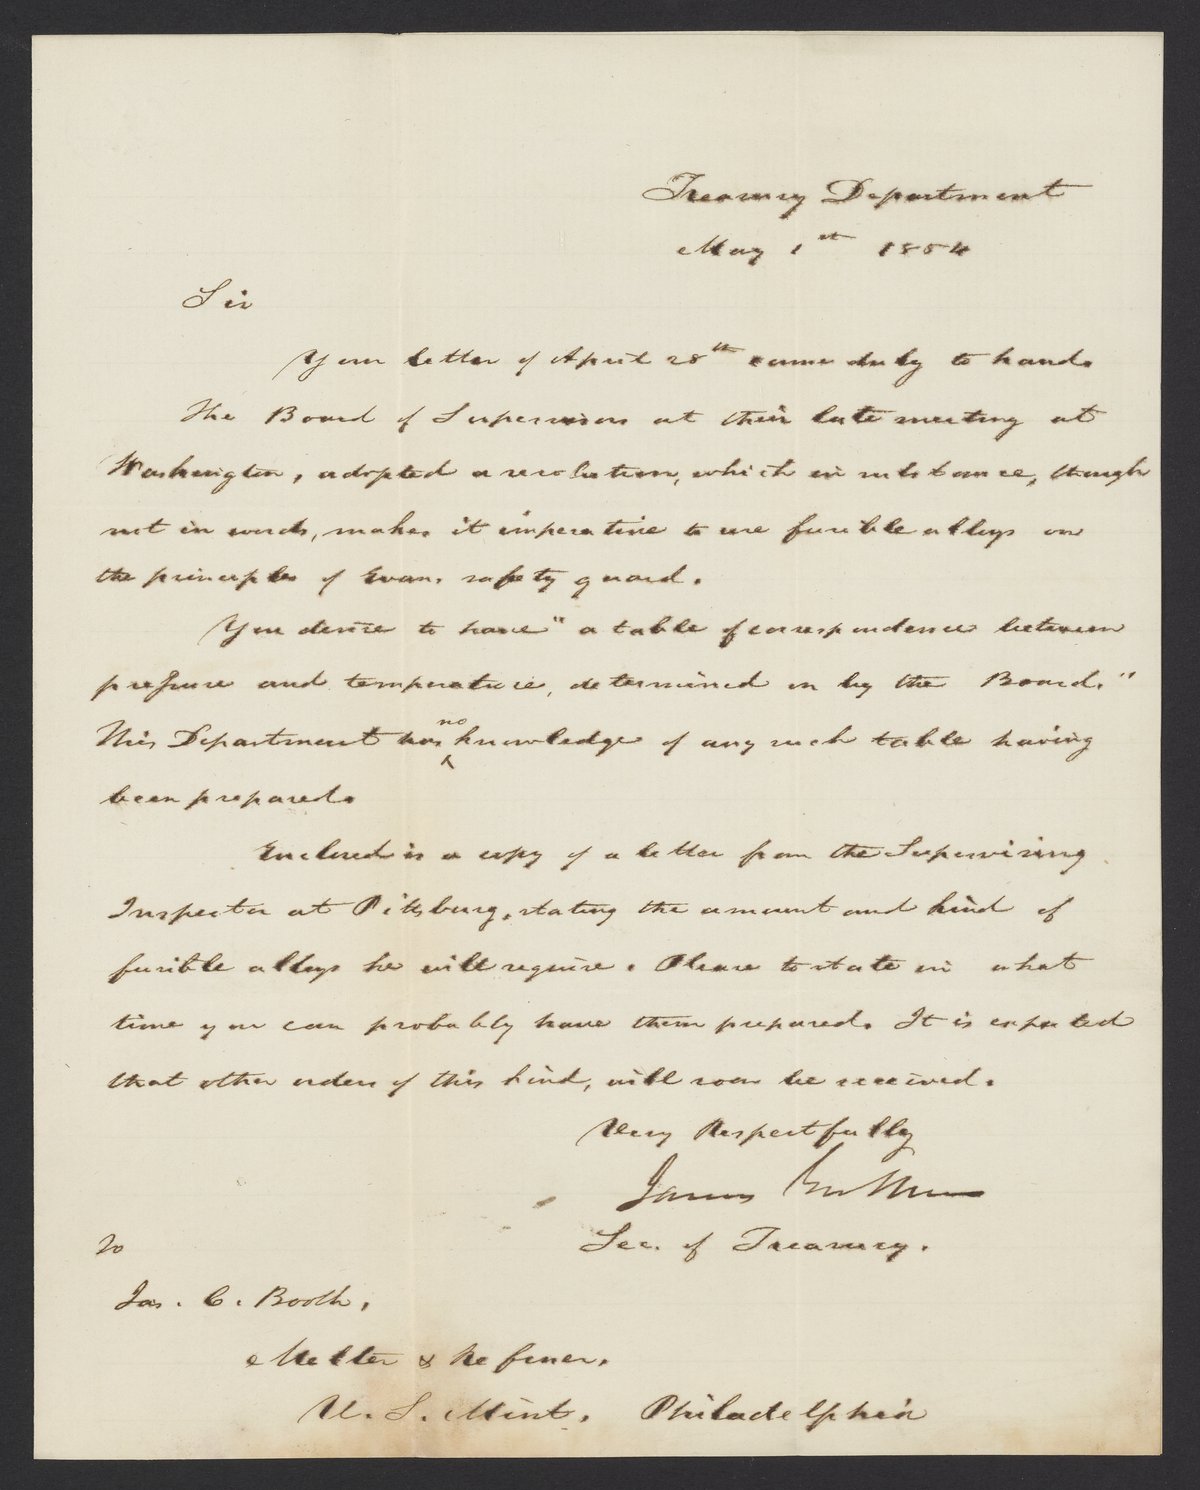 Treasury Department
May 1st 1854
Sir
Your letter of April 28th came duly to hand.
The Board of Supervisors at their late meeting at
Washington, adopted a resolution, which in substance, though
not in words, makes it imperative to use fusible alloys on
the principles of Evans safety guard.
You desire to have "a table of correspondence between
pressure and temperature, determined on by the Board."
This Department has no knowledge of any such table having
been prepared.
Enclosed is a copy of a letter from the Supervising
Inspector at Pittsburg, stating the amount and kind of
fusible alloys he will require. Please to state in what
time you can probably have them prepared. It is expected
that other orders of this kind, will soon be received.
Very Respectfully
James Guthrie
Sec. of Treasury.
To
Jas. C. Booth,
Melter & Refiner,
U. S. Mint, Philadelphia